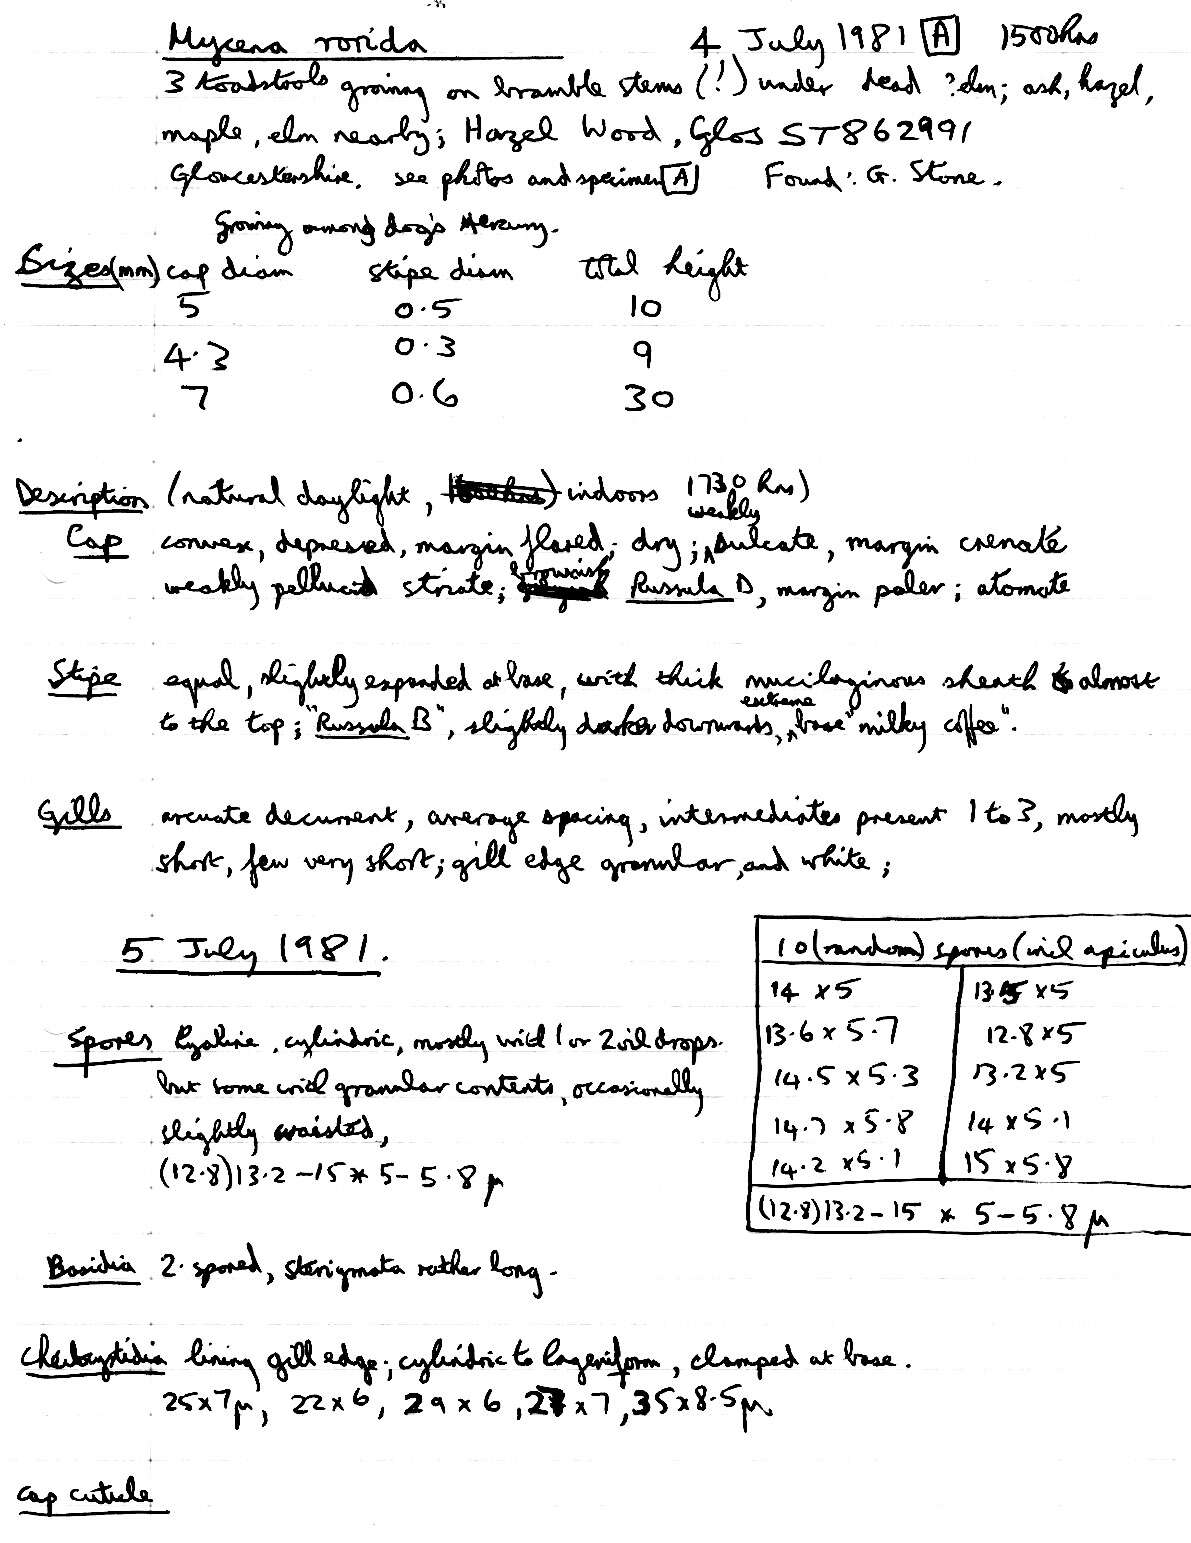 Mycena rorida 4 July 1981 [A] 1500 hrs
3 toadstools growing on bramble stems (!) under dead ?elm; ash, hazel,
maple, elm nearby; Hazel Wood, Glos ST862991
Gloucestershire. see photos and specimen [A] Found: G. Stone.
Growing among dog's Mercury.
Sizes (mm) cap diam stipe diam total height
5 0.5 10
4.3 0.3 9
7 0.6 30
Description (natural daylight, indoors 1730 hrs)
Cap convex, depressed, margin flared; dry; weakly sulcate, margin crenate
weakly pellucid striate; brownish Russula D, margin paler; atomate
Stipe equal, slightly expanded at base, with thick mucilaginous sheath to almost
to the top; "Russula B", slightly darker downwards, extreme base "milky coffee".
Gills arcuate decurrent, average spacing, intermediates present 1 to 3, mostly
short, few very short; gill edge granular, and white;
5 July 1981.
Spores hyaline, cylindric, mostly with 1 or 2 oil drops.
but some with granular contents, occasionally
slightly waisted,
(12.8)13.2-15 * 5-5.8 μ
10 (random) spores (incl apiculus)
14 x 5 13.5 x 5
13.6 x 5.7 12.8 x 5
14.5 x 5.3 13.2 x 5
14.7 x 5.8 14 x 5.1
14.2 x 5.1 15 x 5.8
(12.8)13.2-15 * 5-5.8 μ
Basidia 2-spored, sterigmata rather long.
Cheilocystidia lining gill edge; cylindric to lageniform, clamped at base.
25x7μ, 22x6, 29x6, 27x7, 35x8.5μ
Cap cuticle